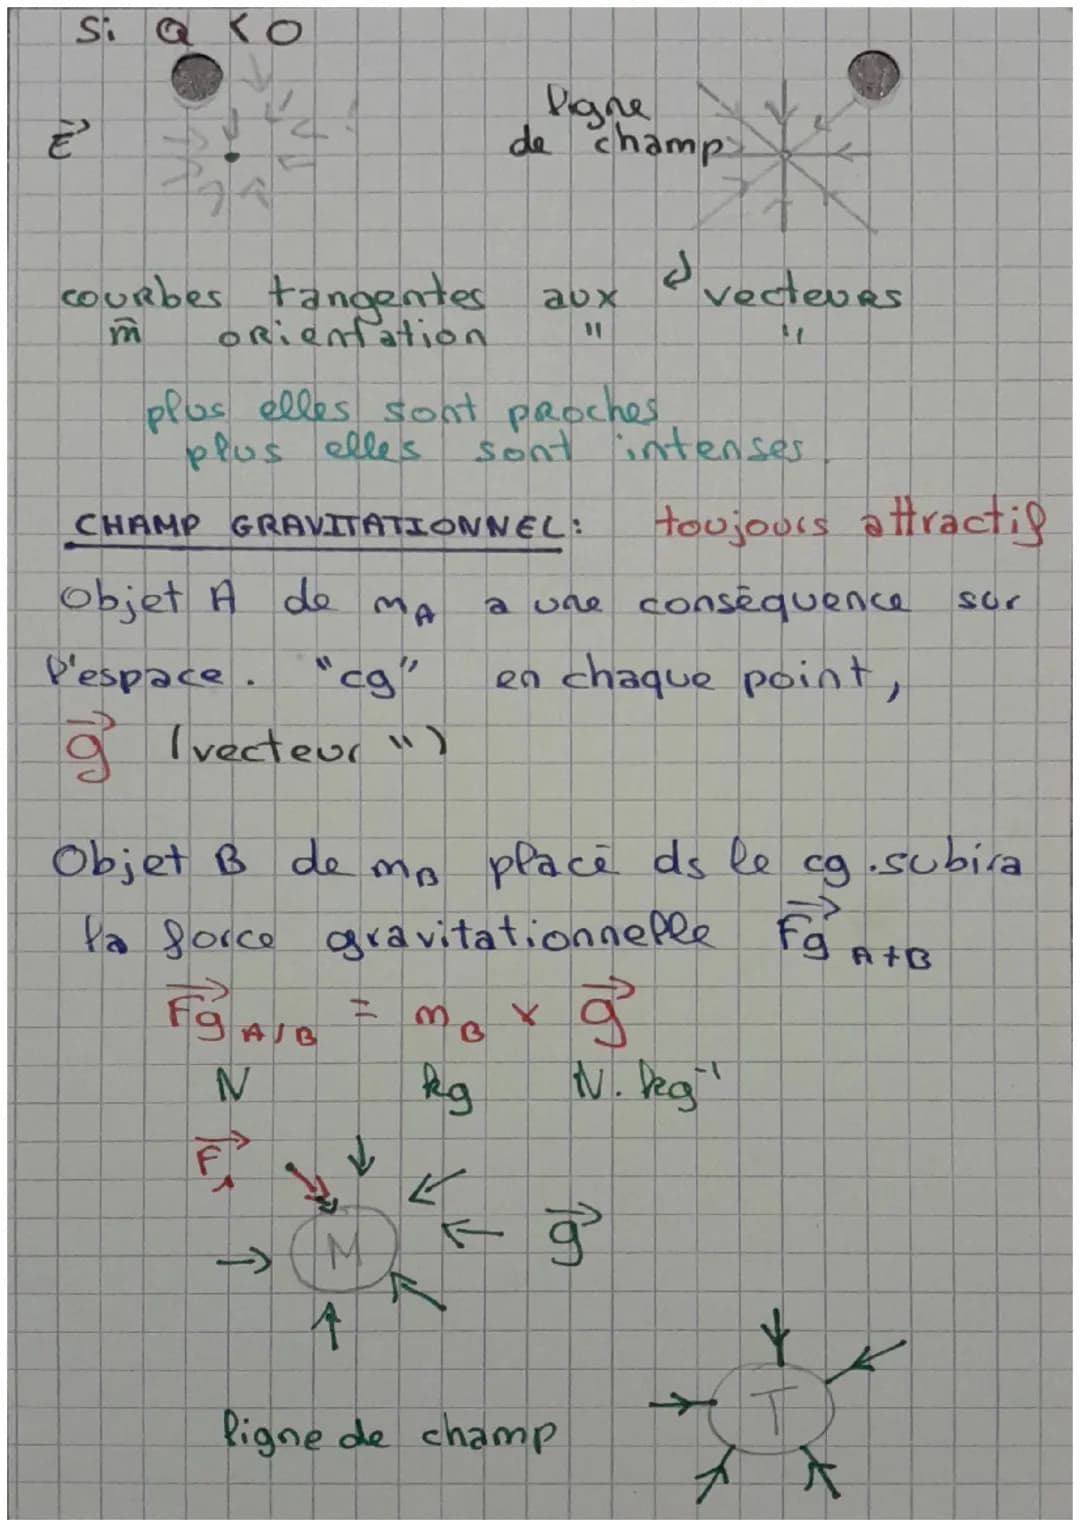 Si Q < 0
E
ligne
de champ
courbes tangentes aux vecteurs
m̄ orientation " "
plus elles sont proches
plus elles sont intenses.
CHAMP GRAVITATIONNEL: toujours attractif
Objet A de mA a une conséquence sur
l'espace. "cg" en chaque point,
g (vecteur ")
Objet B de mB placé ds le cg. subira
la force gravitationnelle Fg A+B
Fg A/B = mB × g
N kg N.kg⁻¹
F₁
M g
T
ligne de champ